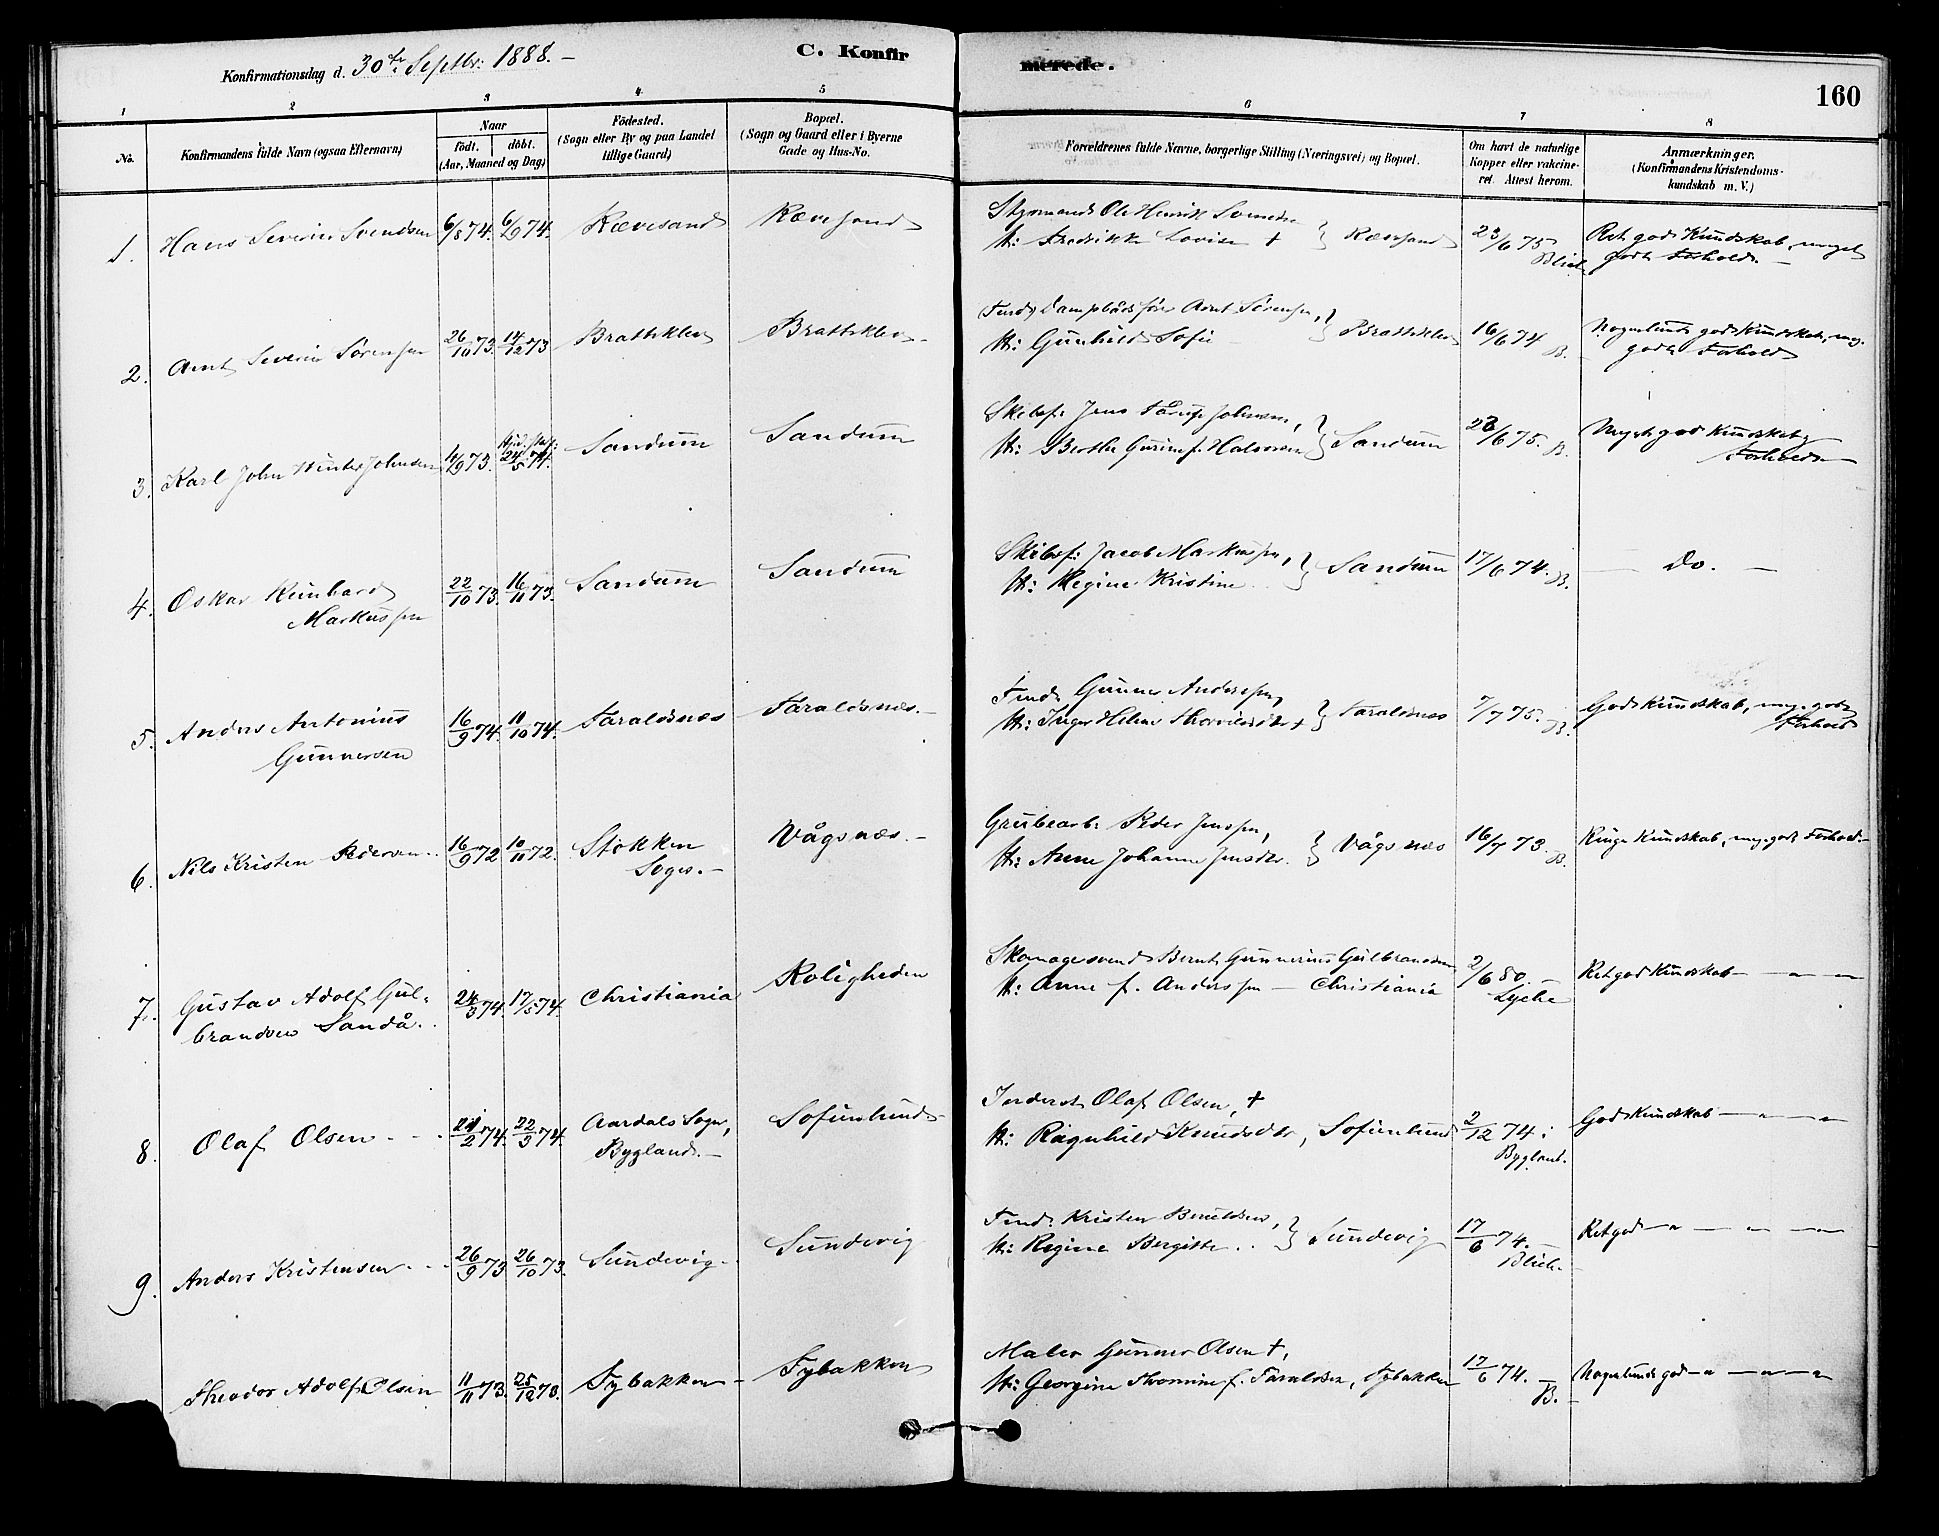 Konfirmationsdag d. 30te Septbr: 1888. –
C. Konfirmerede.
160
1 2 3 4 5 6 7 8
No.
Konfirmandens fulde Navn (ogsaa Efternavn)
Naar
födt. döbt.
(Aar, Maaned og Dag)
Födested.
(Sogn eller By og paa Landet
tillige Gaard)
Bopæl.
(Sogn og Gaard eller i Byerne
Gade og Hus-No.
Forældrenes fulde Navne, borgerlige Stilling (Næringsvei) og Bopæl.
Om havt de naturlige
Kopper eller vakcine-
ret. Attest herom.
Anmærkninger.
(Konfirmandens Kristendoms-
kundskab m. V.)
1. Hans Severin Svendsen 6/8 74. 6/9 74. Rævesand Rævesand
Styrmand Ole Henrik Svendsen
H: Fredrikke Lovise + } Rævesand 23/6 75 Blich
Ret god Kundskab, meget
godt Forhold. –
2. Arnt Severin Sörensen 26/10 73. 14/12 73 Bratteklev Bratteklev.
Arnt Sörensen,
H: Gunhild Sofie } Bratteklev 16/6 74 B.
Nogenlunde god Kundskab, meg.
godt Forhold
3. Karl John Winter Johnsen 4/9 73. 24/5 74. Sandum Sandum
Skibsf: Jens Johnsen,
H: Berthe Gurine f. Halvorsen } Sandum 23/6 75. B.
Meget god Kundskab
Forhold
4. Oskar Reinhard
Markussen
22/10 73. 16/11 73. Sandum Sandum
Skibsf: Jacob Markussen,
H: Regine Kristine } Sandum 17/6 74. B.
– Do. –
5. Anders Antonius
Gunnersen
16/9 74. 11/10 74. Taraldsnæs Taraldsnæs. –
Gunner Anderssen,
H: Inger Helene + } Taraldsnæs 7/7 75. B.
God Kundskab, meg. godt
Forhold
6. Nils Kristen Pedersen 16/9 72 10/11 72. Stokken
Sogn. –
Vågsnæs. –
Grubearb: Peder Jenssen,
H: Anne Johanne Jensdtr. } Vågsnæs 16/7 73. B.
Ringe Kundskab, meg. godt Forhold. –
7. Gustav Adolf Gul-
brandsen Sandå.
24/3 74. 17/5 74. Christiania Roligheden
Skomagersvend Bernt Gunnerius Gulbrandsen
H: Anne f. Anderssen – Christiania 2/6 80. –
Lyche
Ret god Kundskab – " – "
8. Olaf Olsen 21/2 74. 22/3 74. Aardals Sogn,
Bygland. –
Sofienlund
Inderst Olaf Olsen, +
H: Ragnhild Knudsdtr, Sofienlund 2/12 74:
Bygland.
God Kundskab – " – "
9. Anders Kristensen 26/9 73 26/10 73. Sundevig. Sundevig
Kristen Berntsen,
H: Regine Bergitte } Sundevig 17/6 74. –
Blich. –
Ret god – " – " – "
Theodor Adolf Olsen 11/11 73. 25/12 73. Tybakken – Tybakken
Maler Gunner Olsen +,
H: Georgine Thomine f. Taraldsen, Tybakken 17/6 74. –
B. –
Nogenlunde god – " – " – "